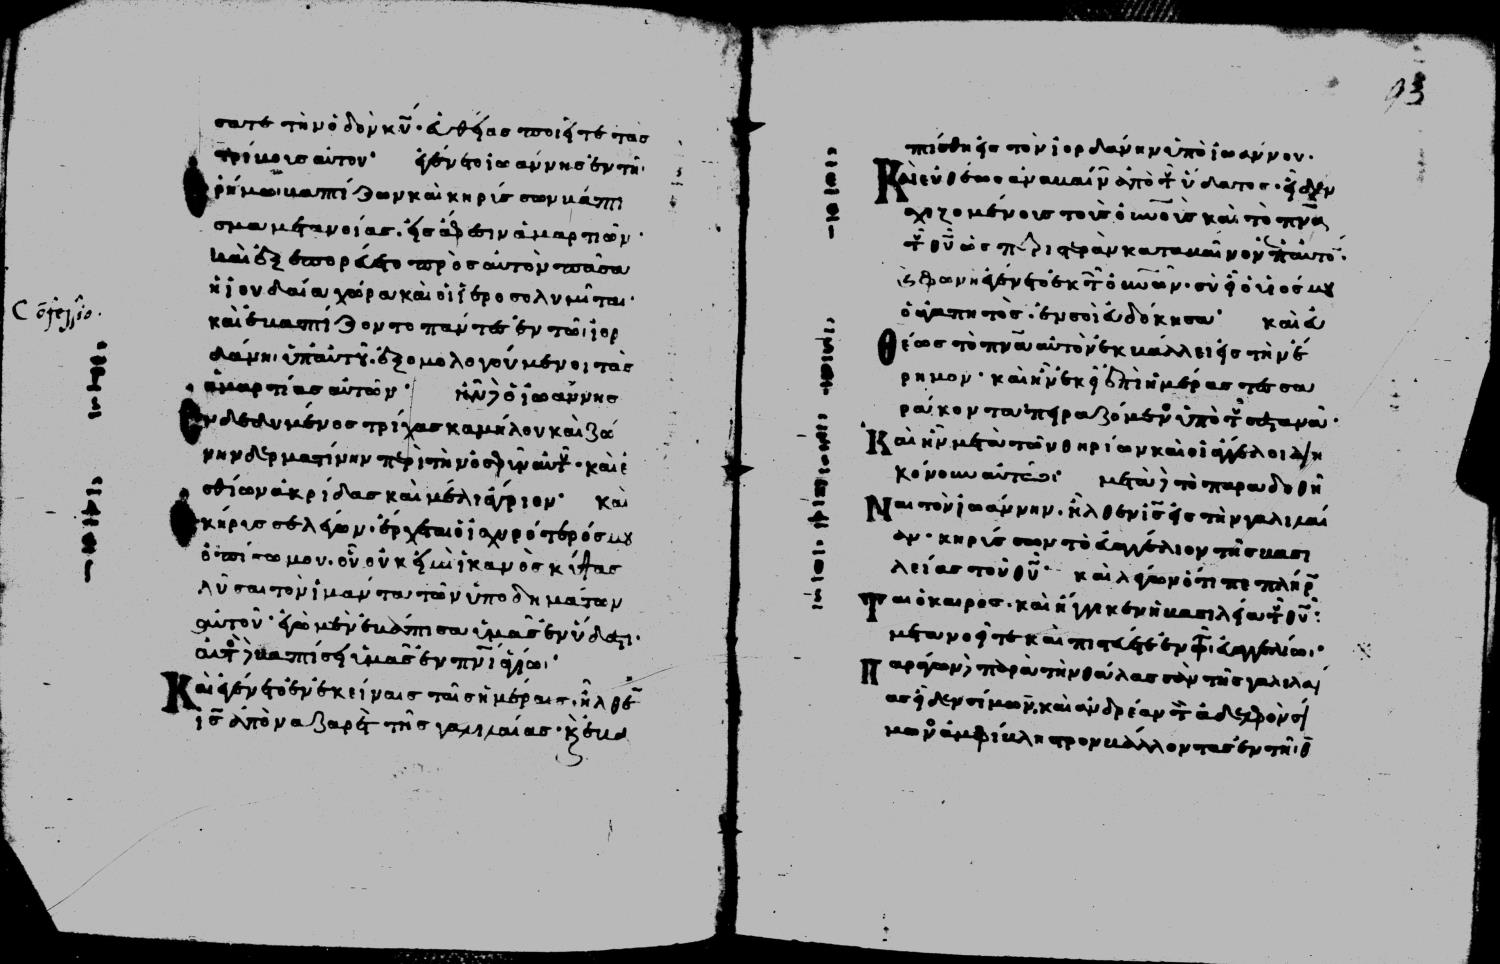 σατε τὴν ὁδὸν κῡ· εὐθείας ποιεῖτε τὰς
τρίβους αὐτοῦ· ἐγένετο ἰωάννης ἐν τῆ
ἐρήμω βαπτίζων καὶ κηρύσσων βάπτι
σμα μετανοίας· εἰς ἄφεσιν ἁμαρτιῶν·
καὶ ἐξεπορεύετο πρὸς αὐτὸν πᾶσα
ἡ ἰουδαία χώρα καὶ οἱ ἱεροσολυμῖται·
καὶ ἐβαπτίζοντο πάντες ἐν τῶ ἰορ
δάνη ὑπ' αὐτοῦ· ἐξομολογούμενοι τὰς
ἁμαρτίας αὐτῶν· ἦν δὲ ὁ ἰωάννης
ἐνδεδυμένος τρίχας καμήλου καὶ ζώ
νην δερματίνην περὶ τὴν ὀσφὺν αὐτοῦ· καὶ ἐ
σθίων ἀκρίδας καὶ μέλι ἄγριον· καὶ
ἐκήρυσσε λέγων· ἔρχεται ὁ ἰσχυρότερός μου
ὀπίσω μου· οὗ οὐκ εἰμὶ ἱκανὸς κύψας
λῦσαι τὸν ἱμάντα τῶν ὑποδημάτων
αὐτοῦ· ἐγὼ μὲν ἐβάπτισα ὑμᾶς ἐν ὕδατι·
αὐτὸς δὲ βαπτίσει ὑμᾶς ἐν πνι ἁγίω·
Καὶ ἐγένετο ἐν ἐκείναις ταῖς ἡμέραις· ἦλθεν
ις ἀπὸ ναζαρὲτ τῆς γαλιλαίας· καὶ ἐβα
Confessio.
93
πτίσθη εἰς τὸν ἰορδάνην ὑπὸ ἰωάννου·
Καὶ εὐθέως ἀναβαίνων ἀπὸ τοῦ ὕδατος· εἶδεν
σχιζομένους τοὺς οὐνοὺς καὶ τὸ πνα
τοῦ θυ ὡς περιστερὰν καταβαῖνον ἐπ' αὐτόν·
καὶ φωνὴ ἐγένετο ἐκ τῶν οὐνῶν· σὺ εἶ ὁ υἱός μου
ὁ ἀγαπητὸς· ἐν σοὶ εὐδόκησα· καὶ εὐ
θέως τὸ πνα αὐτὸν ἐκβάλλει εἰς τὴν ἔ
ρημον· καὶ ἦν ἐκεῖ ἐπὶ ἡμέρας τεσσα
ράκοντα πειραζόμενος ὑπὸ τοῦ σατανᾶ·
Καὶ ἦν μετὰ τῶν θηρίων καὶ οἱ ἄγγελοι διη
κόνουν αὐτῶ· μετὰ δὲ τὸ παραδοθῆ
ναι τὸν ἰωάννην· ἦλθεν ις εἰς τὴν γαλιλαί
αν· κηρύσσων τὸ εὐαγγέλιον τῆς βασι
λείας τοῦ θυ· καὶ λέγων ὅτι πεπλήρω
ται ὁ καιρος· καὶ ἤγγικεν ἡ βασιλεία τοῦ θυ·
μετανοεῖτε καὶ πιστεύετε ἐν τῶ εὐαγγελίω·
Περιπατῶν δὲ παρὰ τὴν θάλασσαν τῆς γαλιλαί
ας εἶδεν σίμωνα καὶ ἀνδρέαν τὸν ἀδελφὸν σί
μωνος ἀμφίβληστρον βάλλοντας ἐν τῆ θ